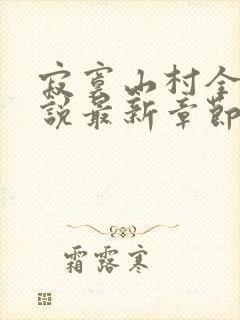 寂寞山村全
說最新章節
霜露寒